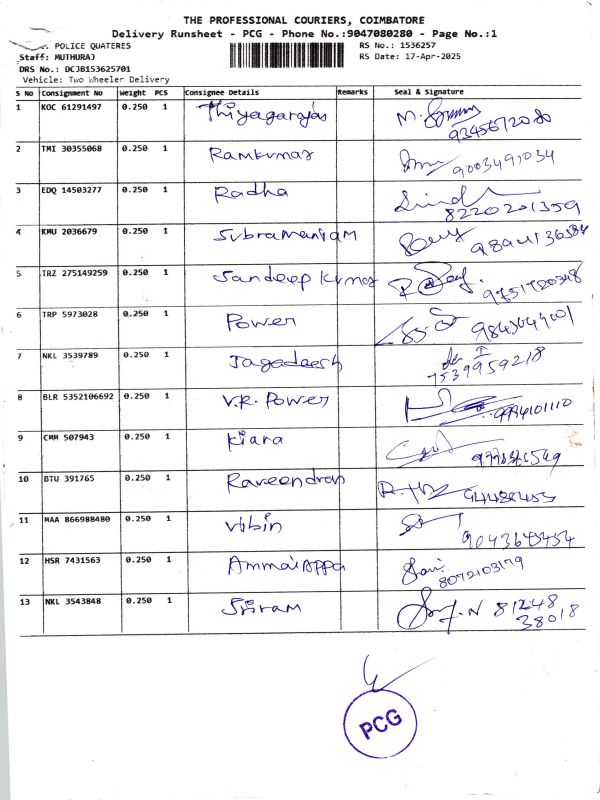 THE PROFESSIONAL COURIERS, COIMBATORE
Delivery Runsheet - PCG - Phone No.:9047080280 - Page No.:1
POLICE QUATERES RS No.: 1536257
Staff: MUTHURAJ RS Date: 17-Apr-2025
DRS No.: DCJB153625701
Vehicle: Two Wheeler Delivery
S No Consignment No Weight PCS Consignee Details Remarks Seal & Signature
1 KOC 61291497 0.250 1 Thiyagarajan
2 TMI 30355068 0.250 1 Ramkumar 9003491034
3 EDQ 14503277 0.250 1 Radha 8220201359
4 KMU 2036679 0.250 1 Subramaniyam
5 TRZ 275149259 0.250 1 Sandeep Kumar 9751720348
6 TRP 5973028 0.250 1 Power
7 NKL 3539789 0.250 1 Jagadeesh 7539959218
8 BLR 5352106692 0.250 1 V.R. Power
9 CMM 507943 0.250 1 Kiara
10 BTU 391765 0.250 1 Raveendran
11 MAA 866988480 0.250 1 Vibin
12 HSR 7431563 0.250 1 Ammaiappa 8072103179
13 NKL 3543848 0.250 1 Sriram 81248
38018
PCG